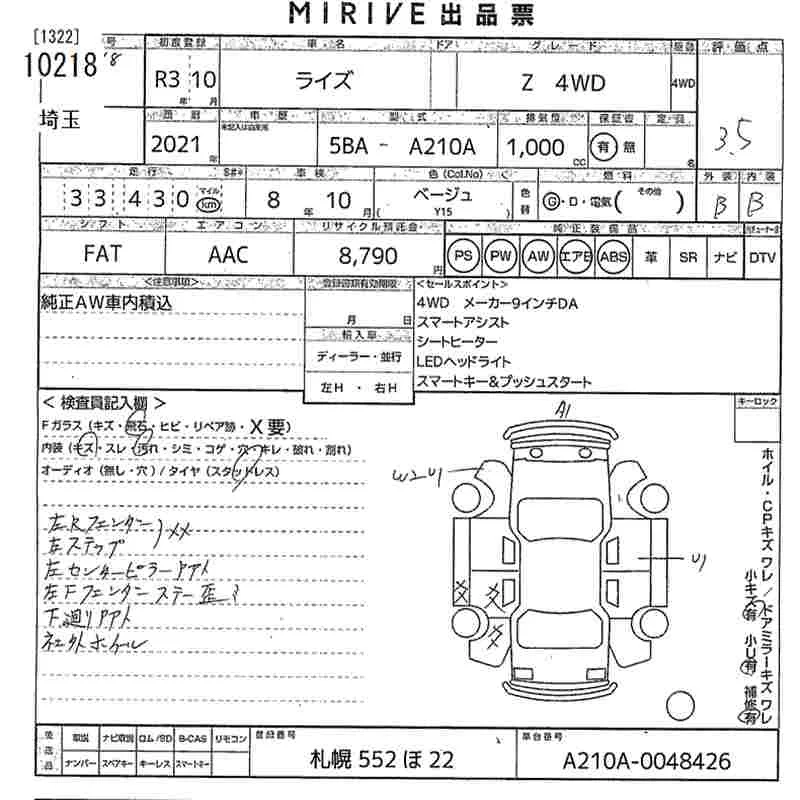 MIRIVE 出品票
[1322]
10218 '8
号 初度登録 車名 ドア グレード 駆動 評価点
R3 10 ライズ Z 4WD 4WD
年 月
3.5
埼玉
車歴 型式 排気量 保証書 定員
未記入は自家用
2021 5BA - A210A 1,000 有 無
年 CC 名
走行 車検 色(Col.No) 燃料 外装 内装
33,430 マイル km 8 年 10 月 ベージュ 色替 G・D・電気( その他 ) B B
( Y15 )
シフト エアコン リサイクル預託金 純正装備品
FAT AAC 8,790 円 PS PW AW エアB ABS 革 SR ナビ DTV
<注意事項> <セールスポイント>
純正AW車内積込
4WD メーカー9インチDA
月 日 スマートアシスト
輸入車 シートヒーター
ディーラー・並行 LEDヘッドライト
左H ・ 右H スマートキー&プッシュスタート
< 検査員記入欄 > キーロック
Fガラス (キズ・飛石・ヒビ・リペア跡・X要)
内装 (キズ・スレ・汚れ・シミ・コゲ・穴・キレ・破れ・割れ)
オーディオ (無し・穴) / タイヤ (スタッドレス)
A1
W2U1
左Rフェンダー
左ステップ ) XX
左センターピラーアト
左Fフェンダーステー歪ミ
下廻りアト
U1
ホイル・CPキズ ワレ / ドアミラーキズ ワレ
小キズ有 小U有 補修有
後送品 取説 ナビ取説 ロム/SD B-CAS リモコン
ナンバー スペアキー キーレス スマートキー
登録番号 札幌 552 ほ 22
車台番号 A210A-0048426